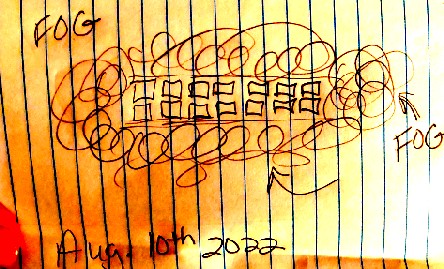 FOG
FOG
Aug. 10th 2022